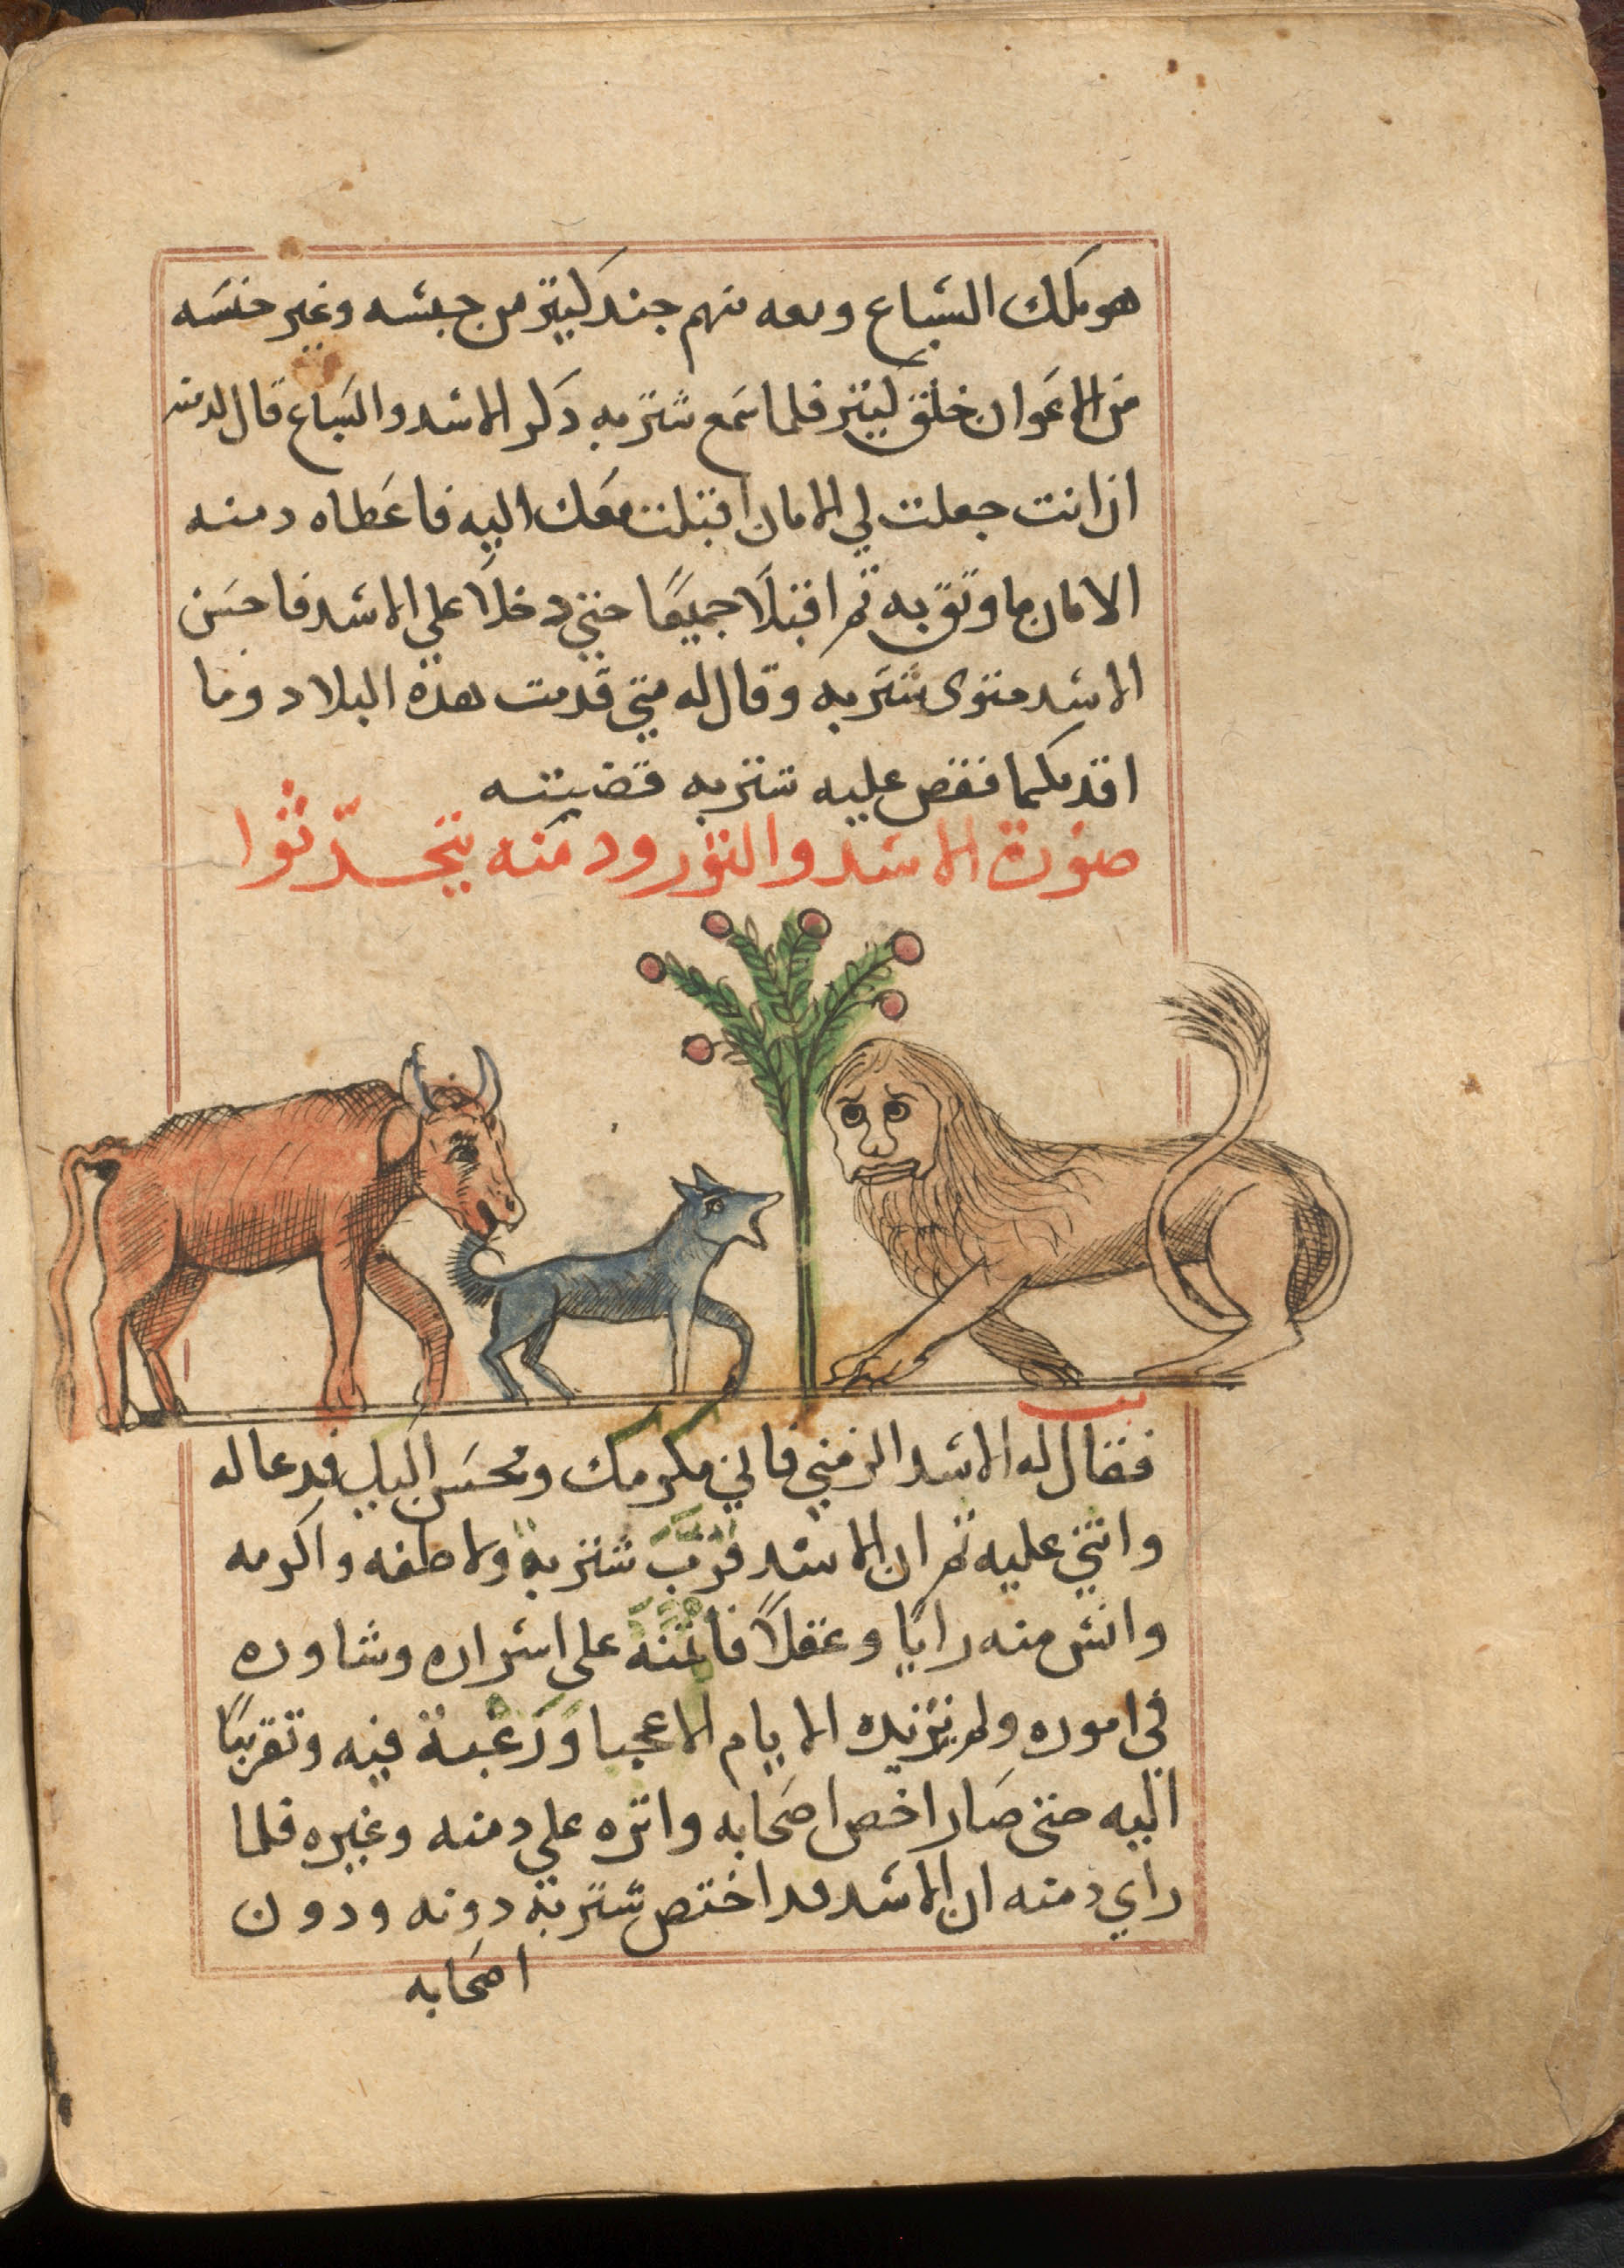 هو ملك السباع ومعه منهم جند كثير من جنسه وغير جنسه
من الاعوان خلق كثير فلما سمع شتربه ذكر الاسد والسباع قال لدمنه
ان انت جعلت لي الامان اقبلت معك اليه فاعطاه دمنه
الامان ما وثق به ثم اقبلا جميعا حتى دخلا على الاسد فاحسن
الاسد مثوى شتربه وقال له متى قدمت هذه البلاد وما
اقدمكما فقص عليه شتربه قصيته
صورة الاسد والثور ودمنه يتحدثوا
فقال له الاسد الزمني فاني مكرمك ومحسن اليك فدعا له
واثنى عليه ثم ان الاسد قرب شتربة ولاطفه واكرمه
وانس منه رايا وعقلا فائتمنه على اسراره وشاوره
في اموره ولم تزيده الايام الا عجبا ورغبة فيه وتقربا
اليه حتى صار اخص اصحابه واثره علي دمنه وغيره فلما
راي دمنه ان الاسد قد اختص شتربة دونه ودون
اصحابه